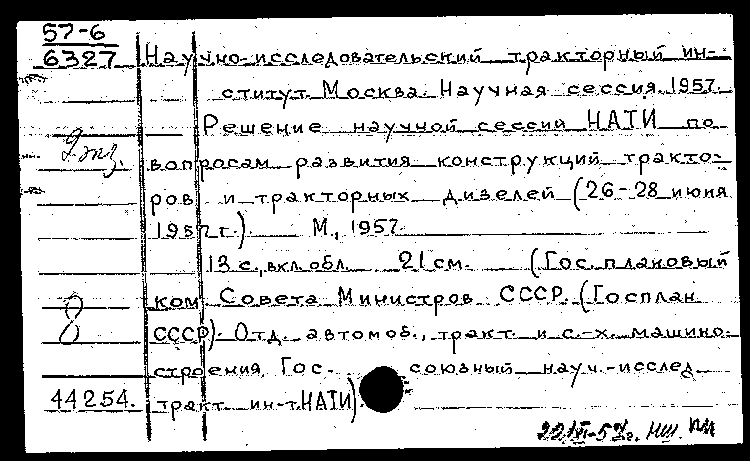 57-6
6327
Научно-исследовательский тракторный ин-
ститут. Москва. Научная сессия. 1957.
Решение научной сессии НАТИ по
2 экз.
вопросам развития конструкций тракто-
ров и тракторных дизелей (26-28 июня
1957 г.) М., 1957.
13 с., вкл. обл. 21 см. (Гос. плановый
8
ком. Совета Министров СССР. (Госплан
СССР). Отд. автомоб., тракт. и с.-х. машино-
строения. Гос. союзный науч.-исслед.
44254.
тракт. ин-т. НАТИ).